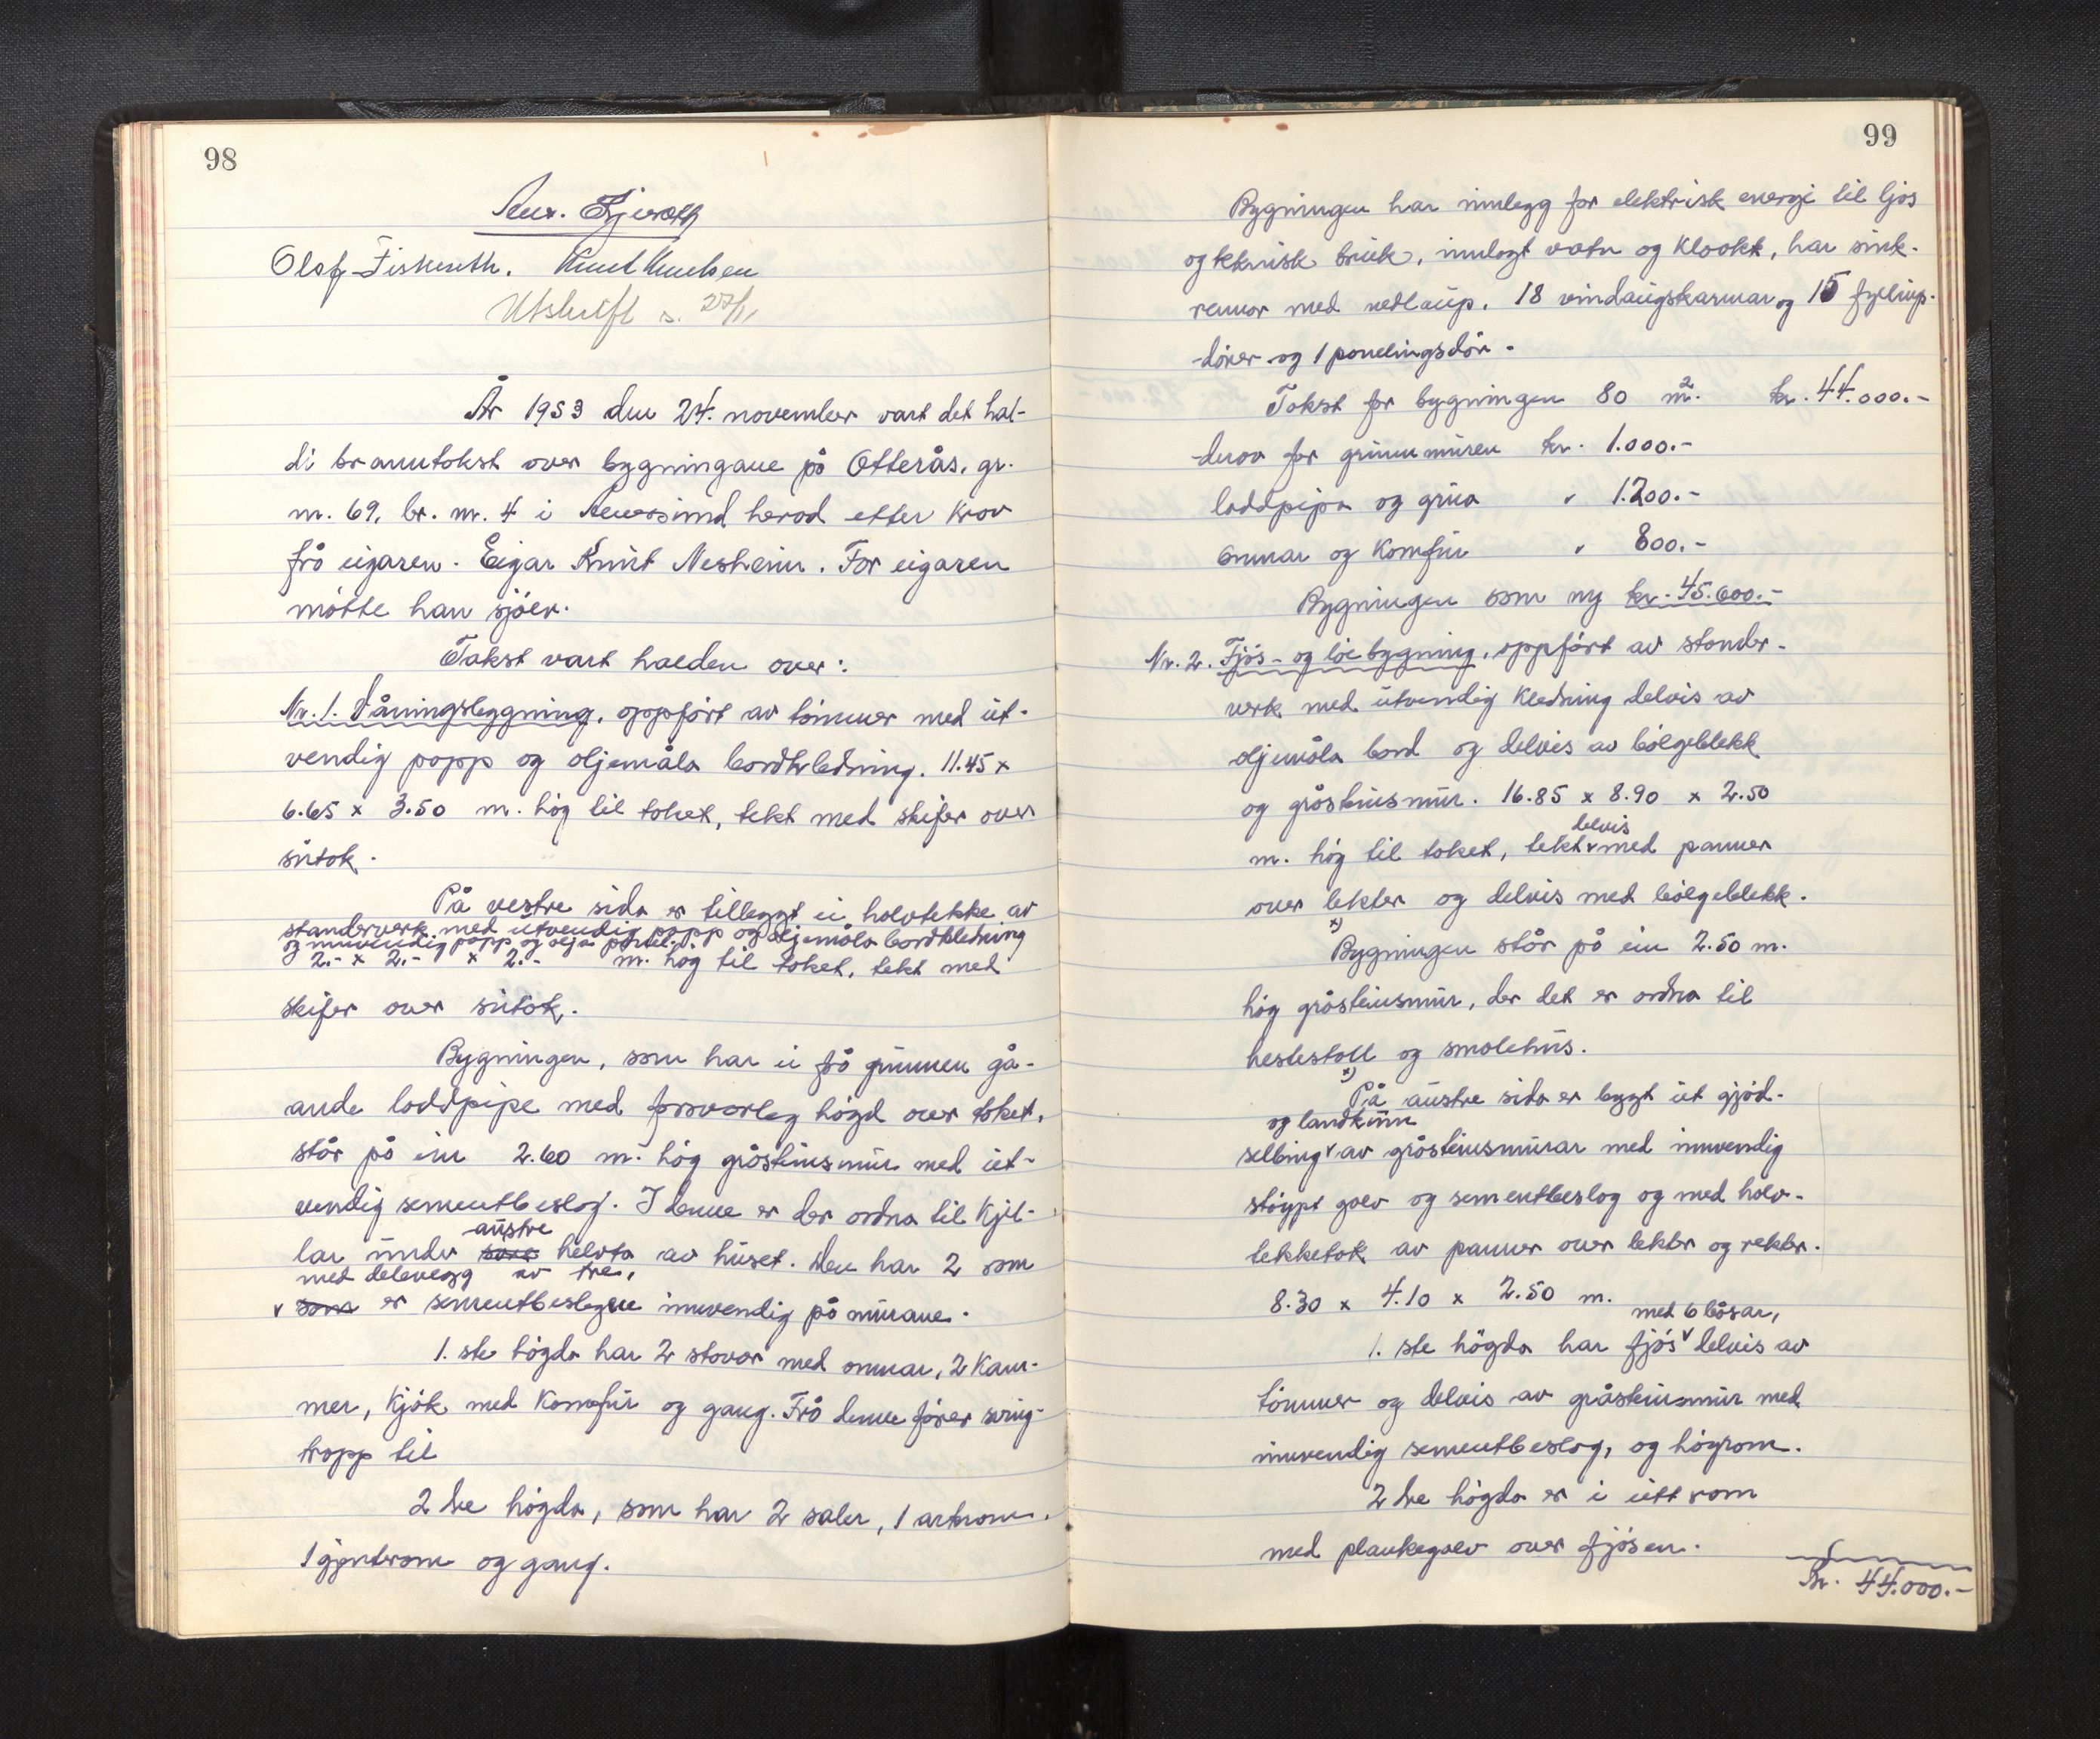 98
Olaf Fiskseth. Knut Knutsen
Utskrift s. 27/11
År 1953 den 24. november vart det hal-
di branntakst over bygningane på Otterås, gr.
nr. 69, br. nr. 4 i herad etter krav
frå eigaren. Eigar Knut Nesheim. For eigaren
møtte han sjølv.
Takst vart halden over:
Nr. 1. Våningsbygning, oppført av tømmer med ut-
vendig papp og oljemåla bordkledning. 11.45 x
6.65 x 3.50 m. høg til taket, tekt med skifer over
sutak.
På vestre sida er tilbygt ei halvtekke av
standerverk med utvendig papp og oljemåla bordkledning
og innvendig papp og olja panel.
2.- x 2.- x 2.- m. høg til taket, tekt med
skifer over sutak.
Bygningen, som har ei frå grunnen gå-
ande loddpipe med forsvarleg høgd over taket,
står på ein 2.60 m. høg gråsteinsmur med ut-
vendig sementbeslag. I denne er der ordna til kjel-
austre
lar under helvta av huset. Den har 2 rom
med delevegg av tre,
v som er sementbeslegne innvendig på murane.
1. ste høgda har 2 stover med omnar, 2 kam-
mer, kjøk med komfur og gang. Frå denne fører sving-
trapp til
2 dre høgda, som har 2 saler, 1 arkrom,
1 gjenterom og gang.
99
Bygningen har innlegg for elektrisk energi til ljos
og teknisk bruk, innlagt vatn og kloakk, har sink-
renner med nedlaup. 18 vindaugskarmar og 15 fyllings-
dører og 1 panelingsdør.
Takst for bygningen 80 m². kr. 44.000.-
derav for grunnmuren kr. 1.000.-
loddpipa og grua " 1.200.-
omnar og komfur " 800.-
Bygningen som ny kr. 45.600.-
Nr. 2. Fjøs- og løebygning, oppført av stander-
verk med utvendig kledning delvis av
oljemåla bord og delvis av bølgeblekk
og gråsteinsmur. 16.85 x 8.90 x 2.50
delvis
m. høg til taket, tekt v med panner
over lekter og delvis med bølgeblekk.
x) Bygningen står på ein 2.50 m.
høg gråsteinsmur, der det er ordna til
hestestall og smalehus.
x) På austre sida er bygt ut gjød-
og landkum
selbing v av gråsteinsmurar med innvendig
støypt golv og sementbeslag og med halv-
tekketak av panner over lekter og rekter.
8.30 x 4.10 x 2.50 m.
med 6 båsar,
1. ste høgda har fjøs v delvis av
tømmer og delvis av gråsteinsmur med
innvendig sementbeslag, og høyrom.
2 dre høgda er i eitt rom
med plankegolv over fjøsen.
kr. 44.000.-